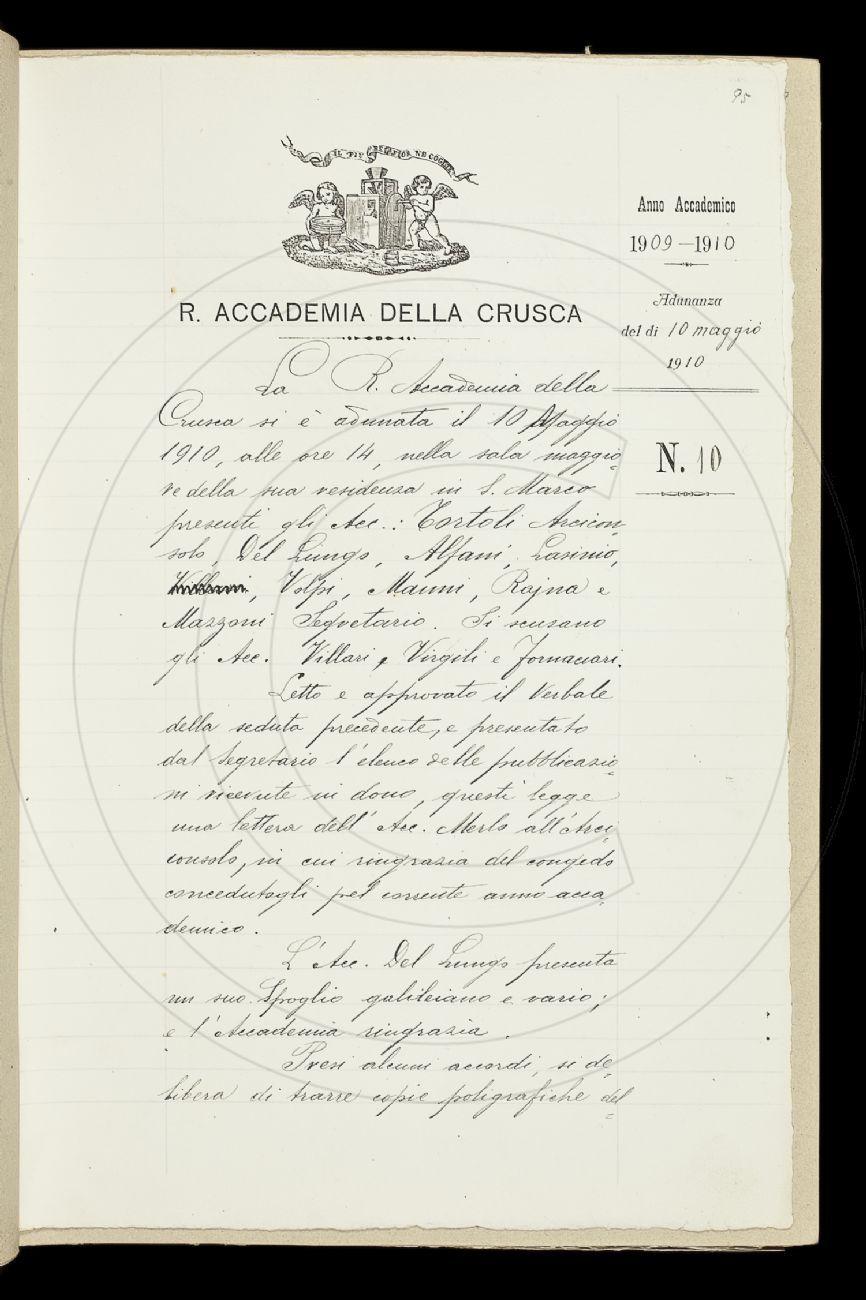 95
IL PIÙ BEL FIOR NE COGLIE
Anno Accademico
1909-1910
Adunanza
del dì 10 maggio
1910
N. 10
R. ACCADEMIA DELLA CRUSCA
La R. Accademia della
Crusca si è adunata il 10 Maggio
1910, alle ore 14, nella sala maggio-
re della sua residenza in S. Marco
presenti gli Acc.: Tortoli Arcicon-
solo, Del Lungo, Alfani, Lasinio,
Villari, Volpi, Manni, Rajna e
Mazzoni Segretario. Si scusano
gli Acc. Villari, Virgili e Fornaciari.
Letto e approvato il Verbale
della seduta precedente, e presentato
dal Segretario l'elenco delle pubblicazio-
ni ricevute in dono, questi legge
una lettera dell'Acc. Merlo all'Arci-
consolo, in cui ringrazia del congedo
concedutogli pel corrente anno acca-
demico.
L'Acc. Del Lungo presenta
un suo Spoglio galileiano e vario;
e l'Accademia ringrazia.
Presi alcuni accordi, si de-
libera di trarre copie poligrafiche del-